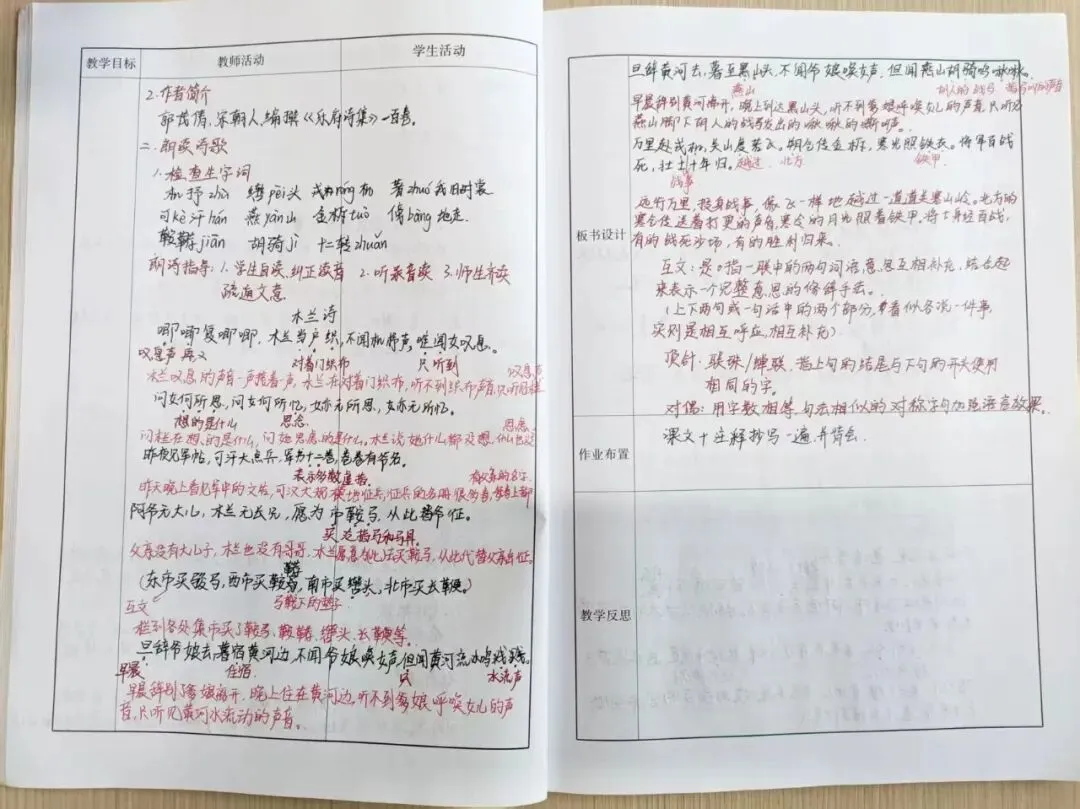 教学目标 教师活动 学生活动
2.作者简介
郭茂倩,宋朝人,编撰《乐府诗集》一百卷。
二.朗读诗歌
1.检查生字词
机杼zhù 辔pèi头 戎róng机 著zhuó我旧时裳
可kè汗hán 燕yān山 金柝tuò 傍bàng地走
鞍鞯jiān 胡骑jì 十二转zhuǎn
朗读指导:1.学生自读,纠正读音 2.听录音读 3.师生齐读
疏通文意
木兰诗
唧唧复唧唧,木兰当户织,不闻机杼声,唯闻女叹息。
叹息声 再 又 对着门织布 只 听到
木兰叹息的声音一声接着一声,木兰在对着门织布,听不到织布声音,只听见
问女何所思,问女何所忆,女亦无所思,女亦无所忆。
想的是什么 思念 思念
问她在想的是什么,问她思虑的是什么。木兰说她什么都没想,
昨夜见军帖,可汗大点兵,军书十二卷,卷卷有爷名。
表示多数,虚指。 有父亲的名字
昨天晚上看见军中的文告,可汉大规模地征兵,征兵的名册很多卷,
阿爷无大儿,木兰无长兄,愿为市鞍马,从此替爷征。
买 泛指马和马具
父亲没有大儿子,木兰也没有哥哥,木兰愿意为此去买鞍马,从此代替父亲出征。
(东市买骏马,西市买鞍鞯,南市买辔头,北市买长鞭。)
互文 马鞍下的垫子
她到各处集市买了鞍马、鞍鞯、辔头、长鞭等。
旦辞爷娘去,暮宿黄河边,不闻爷娘唤女声,但闻黄河流水鸣溅溅。
早晨 住宿 只 水流声
早晨辞别爹娘离开,晚上住在黄河边,听不到爹娘呼唤女儿的声
音,只听见黄河水流动的声音。
旦辞黄河去,暮至黑山头,不闻爷娘唤女声,但闻燕山胡骑鸣啾啾。
燕山 胡人的战马
早晨辞别黄河离开,晚上到达黑山头,听不到爹娘呼唤女儿的声音,只听见
燕山脚下胡人的战马发出的啾啾的嘶鸣声。
万里赴戎机,关山度若飞。朔气传金柝,寒光照铁衣。将军百战
死,壮士十年归。 越过 北方 铁甲
战事
远行万里,投身战事,像飞一样地越过一道道关塞山岭。北方的
寒气传送着打更的声音,寒冷的月光照着铁甲。将士身经百战,
有的战死沙场,有的胜利归来。
板书设计
互文:是指一联中的两句词语,意思互相补充,结合起
来表示一个完整意思的修辞手法。
(上下两句或一句话中的两个部分,看似各说一件事
实则是相互呼应,相互补充)
顶针:联珠/蝉联,指上句的结尾与下句的开头使用
相同的字。
对偶:用字数相等,句法相似的对称字句加强语言效果。
作业布置 课文+注释抄写一遍,并背会
教学反思